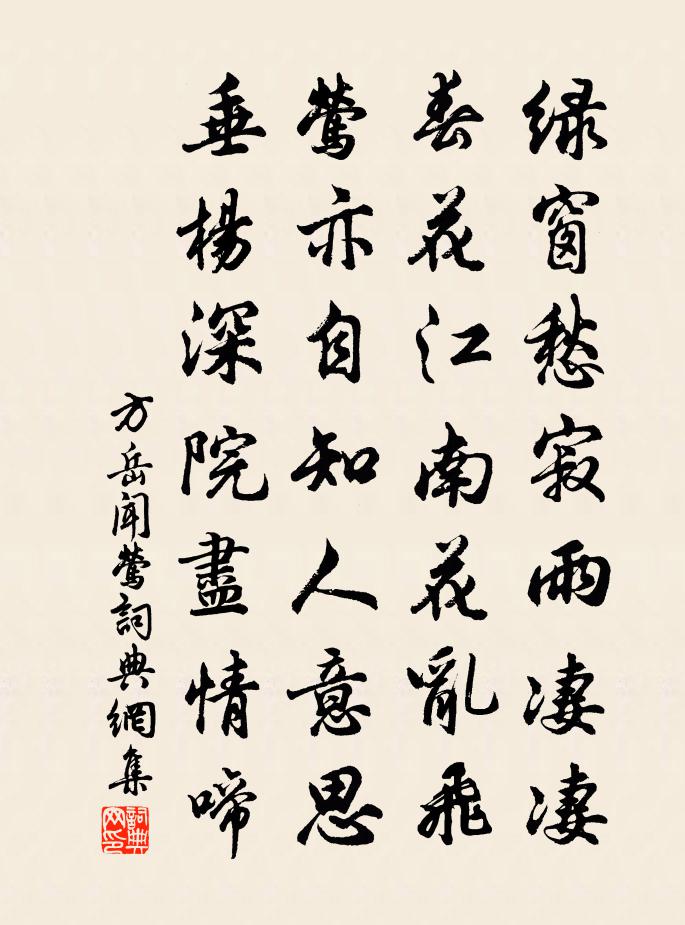 綠窗愁寂雨淒淒
春花江南花亂飛
鶯亦自知人意思
垂楊深院盡情啼
方岳聞鶯詞典網集
詞典網印